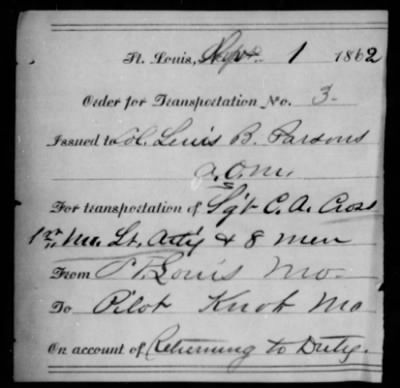 St. Louis, Sept 1 1862
Order for Transportation No. 3.
Issued to Col. Lewis B. Parsons
A.Q.M.
For transportation of Sgt C. A. Cross
1st Mo. Lt. Arty & 8 men
From St. Louis Mo.
To Pilot Knob Mo
On account of Returning to Duty.